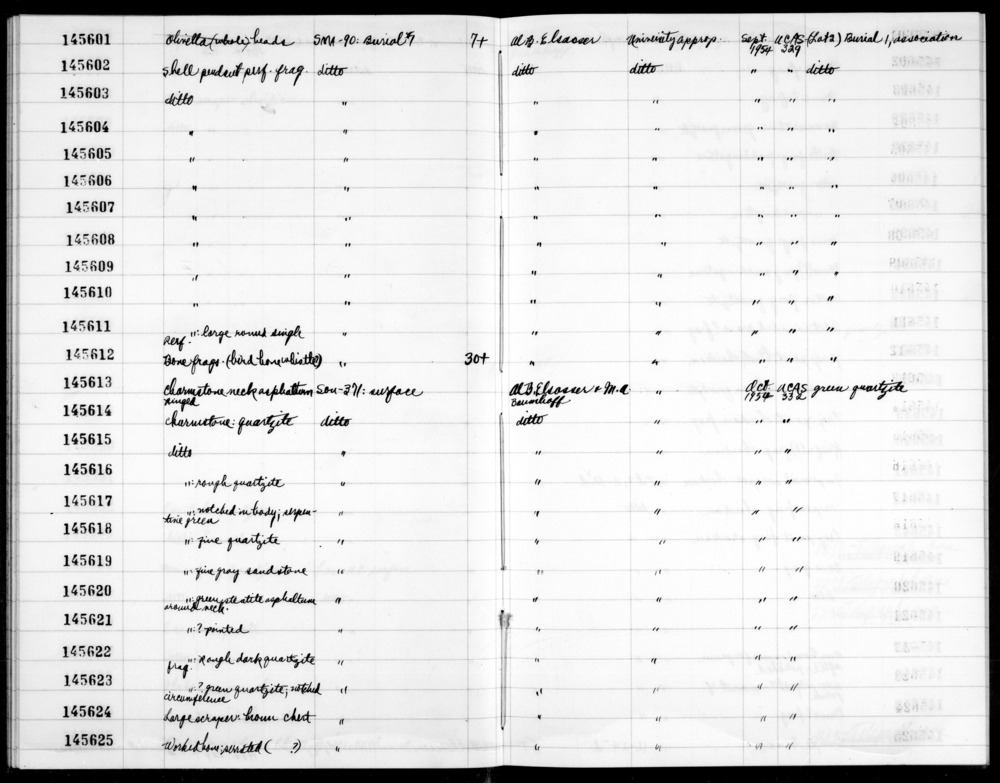 145601 Olivella (whole) beads SMA-90: Burial #7 7+ Al B. Elsasser University approp. Sept 1954 UCAS 329 (Lot 2) Burial 1, association
145602 Shell pendant perf. frag. ditto ditto ditto " " ditto
145603 ditto " " " " " "
145604 " " " " " " "
145605 " " " " " " "
145606 " " " " " " "
145607 " " " " " " "
145608 " " " " " " "
145609 " " " " " " "
145610 " " " " " " "
145611 " : large round single perf. " " " " " "
145612 Bone frags. (bird-bone whistle) " 30+ " " " " "
145613 Charmstone neck asphaltum ringed Son-371: surface Al B. Elsasser & M.A. Baumhoff " Oct 1954 UCAS 332 green quartzite
145614 Charmstone: quartzite ditto ditto " " "
145615 ditto " " " " "
145616 " : rough quartzite " " " " "
145617 " : notched in body; serpentine green " " " " "
145618 " : fine quartzite " " " " "
145619 " : fine gray sandstone " " " " "
145620 " : green steatite asphaltum around neck. " " " " "
145621 " : ? pointed " " " " "
145622 " : Rough dark quartzite frag. " " " " "
145623 " : ? green quartzite; notched circumference " " " " "
145624 Large scraper: brown chert " " " " "
145625 Worked bone; serrated ( ?) " " " " "